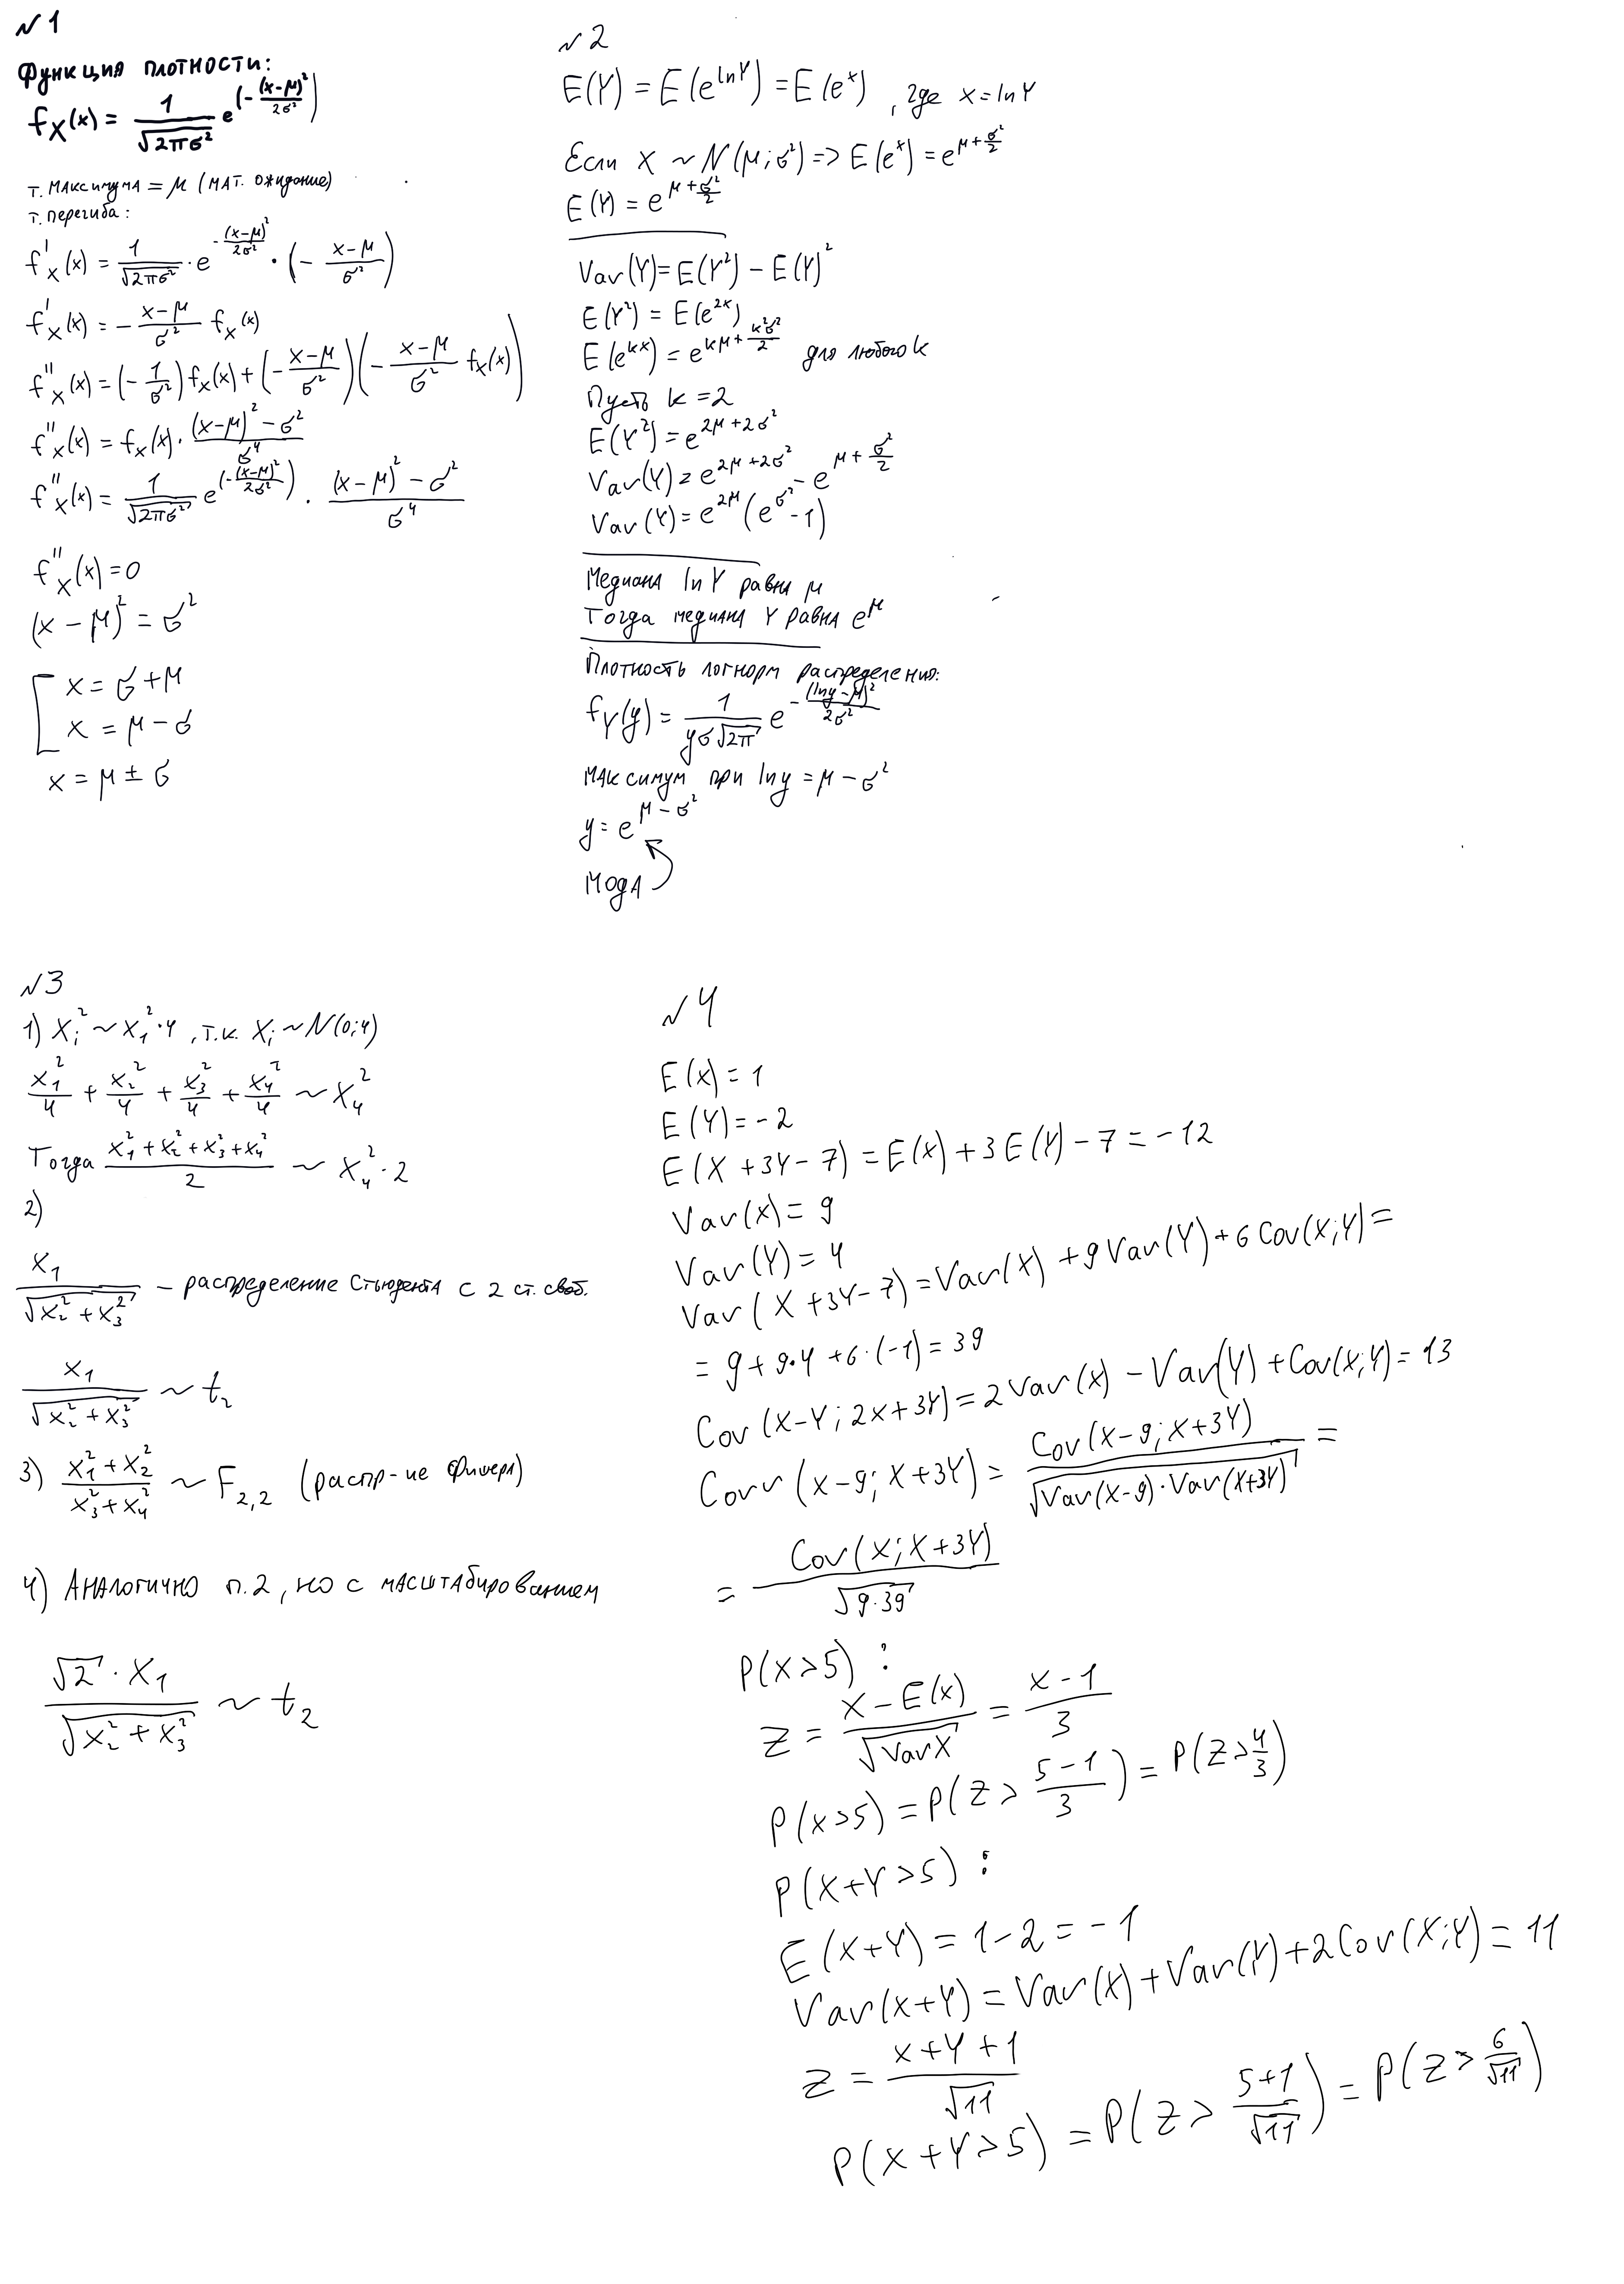 №1
Функция плотности:
f_X(x) = 1/√(2πσ²) e^(-(x-μ)²/2σ²)
т. максимума = μ (мат. ожидание)
т. перегиба:
f'_X(x) = 1/√(2πσ²) · e^(-(x-μ)²/2σ²) · (- (x-μ)/σ²)
f'_X(x) = - (x-μ)/σ² f_X(x)
f''_X(x) = (- 1/σ²) f_X(x) + (- (x-μ)/σ²)(- (x-μ)/σ² f_X(x))
f''_X(x) = f_X(x) · ((x-μ)² - σ²)/σ⁴
f''_X(x) = 1/√(2πσ²) e^(-(x-μ)²/2σ²) · ((x-μ)² - σ²)/σ⁴
f''_X(x) = 0
(x - μ)² = σ²
[ x = σ + μ
x = μ - σ
x = μ ± σ
№2
E(Y) = E(e^(lnY)) = E(e^x) , где x = lnY
Если X ~ N(μ; σ²) => E(e^x) = e^(μ + σ²/2)
E(Y) = e^(μ + σ²/2)
Var(Y) = E(Y²) - E(Y)²
E(Y²) = E(e^(2x))
E(e^(kx)) = e^(kμ + k²σ²/2) для любого k
Пусть k = 2
E(Y²) = e^(2μ + 2σ²)
Var(Y) = e^(2μ + 2σ²) - e^(μ + σ²/2)
Var(Y) = e^(2μ) (e^(σ²) - 1)
Медиана lnY равна μ
Тогда медиана Y равна e^μ
Плотность логнорм распределения:
f_Y(y) = 1/(yσ√2π) e^(-(lny-μ)²/2σ²)
Максимум при lny = μ - σ²
y = e^(μ - σ²)
Мода
№3
1) X_i² ~ X₁² · 4 , т.к. X_i ~ N(0; 4)
X₁²/4 + X₂²/4 + X₃²/4 + X₄²/4 ~ X₄²
Тогда (X₁² + X₂² + X₃² + X₄²)/2 ~ X₄² · 2
2)
X₁/√(X₂² + X₃²) – распределение Стьюдента с 2 ст. своб.
X₁/√(X₂² + X₃²) ~ t₂
3) (X₁² + X₂²)/(X₃² + X₄²) ~ F₂,₂ (распр-ие Фишера)
4) Аналогично п. 2, но с масштабированием
√2 · X₁/√(X₂² + X₃²) ~ t₂
№4
E(X) = 1
E(Y) = -2
E(X + 3Y - 7) = E(X) + 3E(Y) - 7 = -12
Var(X) = 9
Var(Y) = 4
Var(X + 3Y - 7) = Var(X) + 9Var(Y) + 6Cov(X;Y) =
= 9 + 9·4 + 6·(-1) = 39
Cov(X-Y; 2X+3Y) = 2Var(X) - Var(Y) + Cov(X;Y) = 13
Corr(X-9; X+3Y) = Cov(X-9; X+3Y)/√(Var(X-9) · Var(X+3Y)) =
= Cov(X; X+3Y)/√(9·39)
P(X>5) :
Z = (X - E(X))/√VarX = (X-1)/3
P(X>5) = P(Z > (5-1)/3) = P(Z > 4/3)
P(X+Y>5) :
E(X+Y) = 1-2 = -1
Var(X+Y) = Var(X) + Var(Y) + 2Cov(X;Y) = 11
Z = (X+Y+1)/√11
P(X+Y>5) = P(Z > (5+1)/√11) = P(Z > 6/√11)